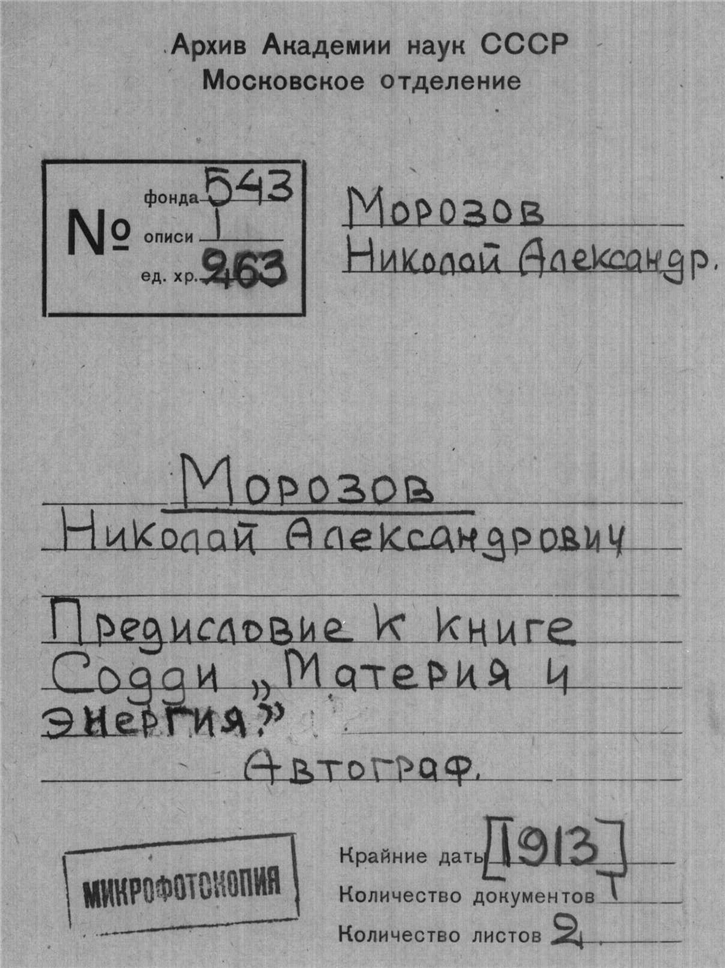 Архив Академии наук СССР
Московское отделение
№
фонда 543
описи 1
ед. хр. 263
Морозов
Николай Александр.
Морозов
Николай Александрович
Предисловие к книге
Содди „Материя и
энергия."
Автограф.
МИКРОФОТОКОПИЯ
Крайние даты [1913]
Количество документов 1
Количество листов 2